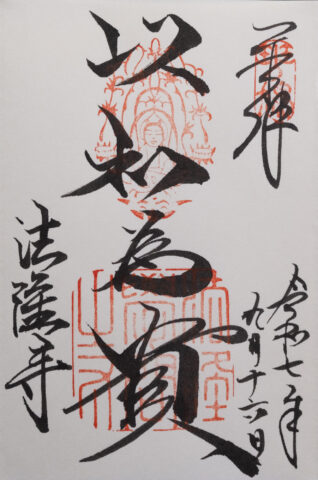 奉拝
令和七年
九月十六日
以和為貴
法隆寺